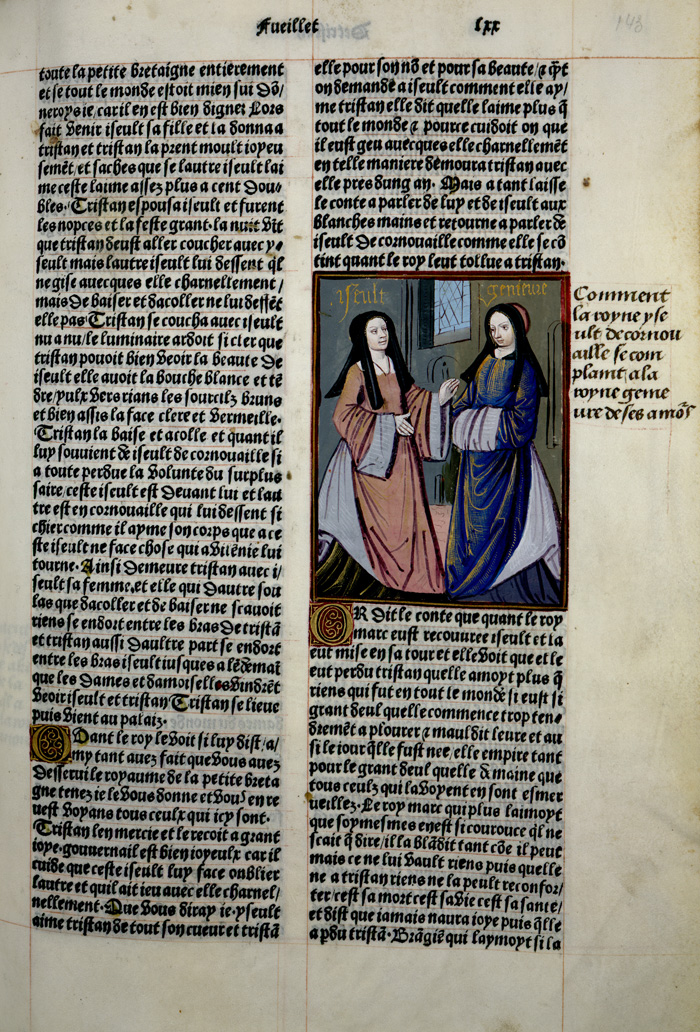 Fueillet lxx
143
toute la petite bretaigne entierement
et se tout le monde estoit mien sui dō/
neroys ie/car il en est bien digne: Lors
fait venir iseult sa fille et la donna a
tristan et tristan la prent moult ioyeu
semēt/et saches que se lautre iseult lai
me ceste laime assez plus a cent dou/
bles. Tristan espousa iseult et furent
les nopces et la feste grant. la nuit vit
que tristan deust aller coucher auec y
seult mais lautre iseult lui dessent ql
ne gise auecques elle charnellement/
mais de baiser et dacoller ne lui dessēt
elle pas Tristan se coucha auec iseult
nu a nu/le luminaire ardoit si cler que
tristan pouoit bien veoir la beaute de
iseult elle auoit la bouche blance et tē
dre/yulx vers rians les sourcilz bruns
et bien assis la face clere et vermeille.
Tristan la baise et acolle et quant il
luy souuient de iseult de cornouaille si
a toute perdue la volunte du surplus
faire/ceste iseult est deuant lui et lau
tre est en cornouaille qui lui dessent si
chier comme il ayme son corps que a ce
ste iseult ne face chose qui a vilenie lui
tourne. Ainsi demeure tristan auec i/
seult sa femme. et elle qui dautre sou
las que dacoller et de baiser ne scauoit
riens se endort entre les bras de tristā
et tristan aussi daultre part se endort
entre les bras iseult iusques a lēdemaī
que les dames et damoiselles vindrēt
veoir iseult et tristan Tristan se lieue
puis vient au palaiz.
Quant le roy le voit si luy dist/a/
my tant auez fait que vous auez
desserui le royaume de la petite breta
gne tenez ie le vous donne et vous en re
uest voyans tous ceulx qui icy sont.
Tristan len mercie et le recoit a grant
ioye. gouuernail est bien ioyeulx car il
cuide que ceste iseult luy face oublier
lautre et quil ait ieu auec elle charnel/
nellement. Que vous diray ie. yseult
aime tristan de tout son cueur et tristā
elle pour son nō et pour sa beaute/et qnt
on demande a iseult comment elle ay/
me tristan elle dit quelle laime plus q̄
tout le monde et pource cuidoit on que
il eust geu auecques elle charnellemēt
en telle maniere demoura tristan auec
elle pres dung an. Mais a tant laisse
le conte a parler de luy et de iseult aux
blanches mains et retourne a parler de
iseult de cornouaille comme elle se cō
tint quant le roy leut tollue a tristan.
iseult genieure
Comment
la royne yse
ult de cornou
aille se com
plaint a la
royne genie
ure de ses amors
OR dit le conte que quant le roy
marc eust recouuree iseult et la
eut mise en sa tour et elle voit que elle
eut perdu tristan quelle amoyt plus q̄
riens qui fut en tout le monde si eust si
grant deul quelle commence trop ten/
dremēt a plourer et mauldit leure et au
si le iour q̄lle fust nee/elle empire tant
pour le grant deul quelle demaine que
tous ceulz qui la voyent en sont esmer
ueillez. Le roy marc qui plus laimoyt
que soymesmes en est si courouce ql ne
scait q̄ dire/il la blādit tant cōe il peut
mais ce ne lui vault riens puis quelle
ne a tristan riens ne la peult reconfor/
ter/cest sa mort cest sa vie cest sa sante/
et dist que iamais naura ioye puis q̄lle
a pdu tristā. Brāgiē qui laymoyt si la